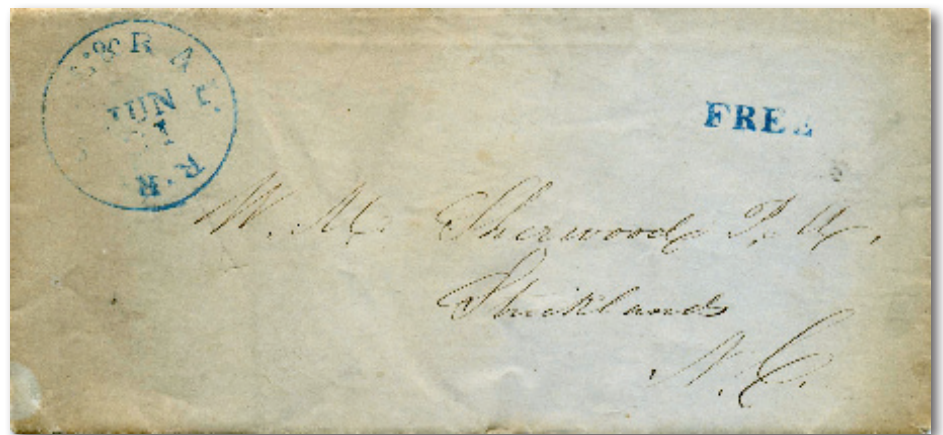 & RAL.
JUN
R.R
FREE
W. M. Sherwood P. M.
Stricklands
N. C.